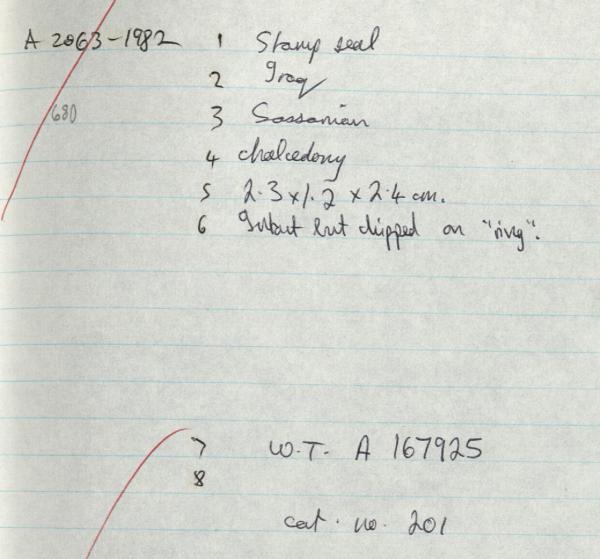 A 2063-1982 1 Stamp seal
2 Iraq
680 3 Sassanian
4 chalcedony
5 2.3 x 1.2 x 2.4 cm.
6 Intact but chipped on "ring".
7 W.T. A 167925
8
cat. no. 201